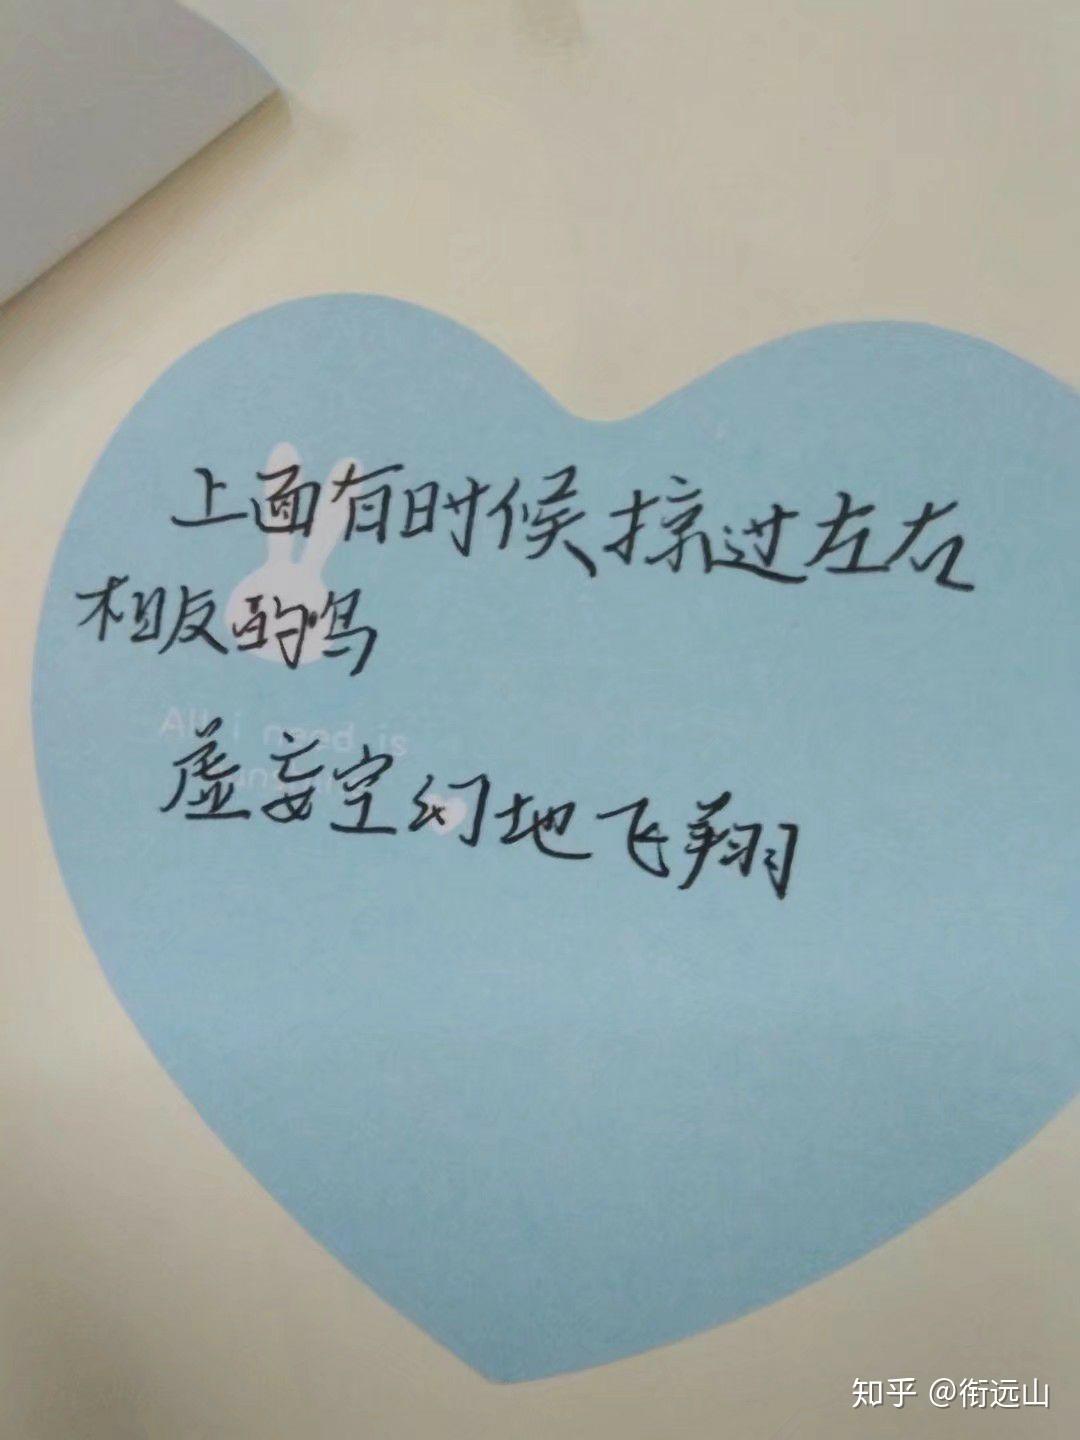 上面有时候掠过左右
相反的鸟
All i need is
虚妄空幻地飞翔
知乎 @衔远山